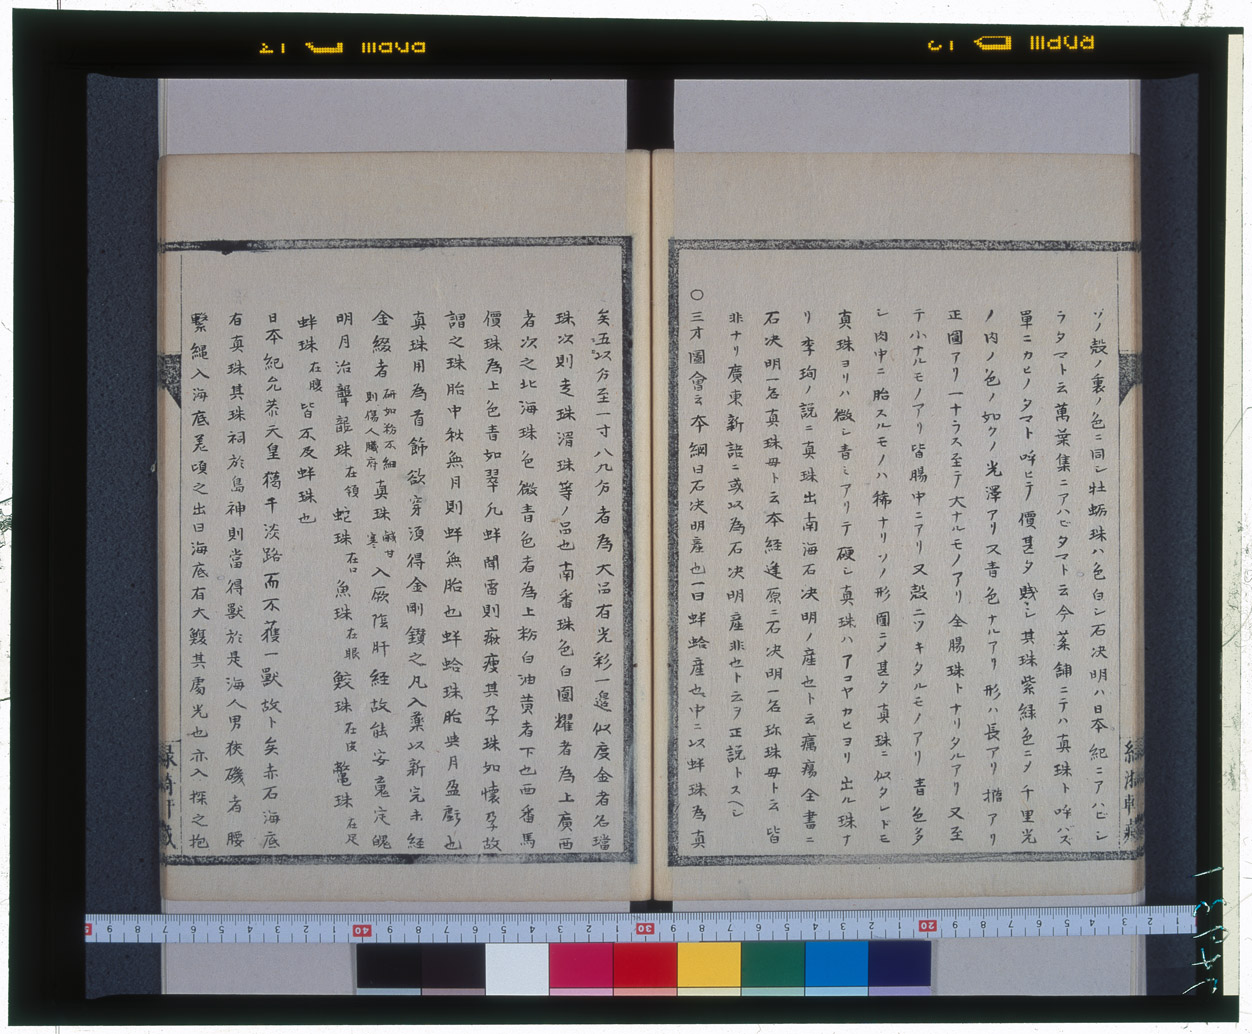 ソノ殻ノ裏ノ色ニ同シ牡蛎珠ハ色白シ石决明ハ日本紀ニアハビシ
ラタマト云萬葉集ニアハビタマト云今薬舗ニテハ真珠ト呼バズ
單ニカヒノタマト呼ヒテ價甚タ賎シ其珠紫緑色ニメ千里光
ノ肉ノ色ノ如クノ光澤アリス青色ナルアリ形ハ長アリ撱アリ
正圓アリ一ナラス至テ大ナルモノアリ全腸珠トナリタルアリ又至
テ小ナルモノアリ皆腸中ニアリ又殻ニツキタルモノアリ青色多
シ肉中ニ胎スルモノハ稀ナリソノ形圓ニメ甚タ真珠ニ似タレトモ
真珠ヨリハ微シ青ミアリテ硬シ真珠ハアコヤカヒヨリ出ル珠ナ
リ李珣ノ説ニ真珠出南海石决明ノ産也ト云瘍瘍全書ニ
石决明一名真珠母ト云本経逢原ニ石决明一名珎珠母ト云皆
非ナリ廣東新語ニ或以為石决明産非也ト云ヲ正説トスヘシ
〇三才圖會云本綱曰石决明産也一曰蚌蛤産也中ニ以蚌珠為真
矣五分至一寸八九分者為大品有光彩一邉似度金者名璫
珠次則走珠滑珠等ノ品也南番珠色白圓耀者為上廣西
者次之北海珠色微青色者為上粉白油黄者下也西番馬
價珠為上色青如翠凡蚌聞雷則瘷瘦其孕珠如懐孕故
謂之珠胎中秋無月則蚌無胎也蚌蛤珠胎與月盈虧也
真珠用為首飾欲穿湏得金剛鑚之凡入薬以新完未経
金綴者研如粉不細則傷人臓府真珠鹹甘寒入厥陰肝経故能安䰟定魄
明月治聾龍珠在頷蛇珠在口魚珠在眼鮫珠在皮鼈珠在足
蚌珠在腹皆不及蚌珠也
日本紀允恭天皇獦于淡路而不獲一獸故卜矣赤石海底
有真珠其珠祠於島神則當得獸於是海人男狭磯者腰
繋縄入海底差頃之出曰海底有大鰒其處光也亦入探之抱